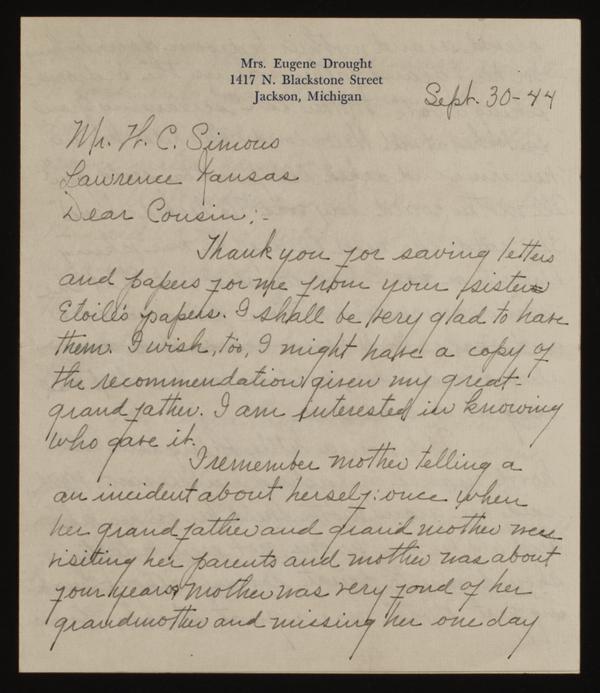 Mrs. Eugene Drought
1417 N. Blackstone Street
Jackson, Michigan
Sept. 30-44
Mr. W. C. Simons
Lawrence Kansas
Dear Cousin;-
Thank you for saving letters
and papers for me from your sister
Etoile's papers. I shall be very glad to have
them. I wish, too, I might have a copy of
the recommendation given my great-
grandfather. I am interested in knowing
who gave it.
I remember mother telling a
an incident about herself: once when
her grandfather and grand mother were
visiting her parents and mother was about
four years. Mother was very fond of her
grandmother and missing her one day